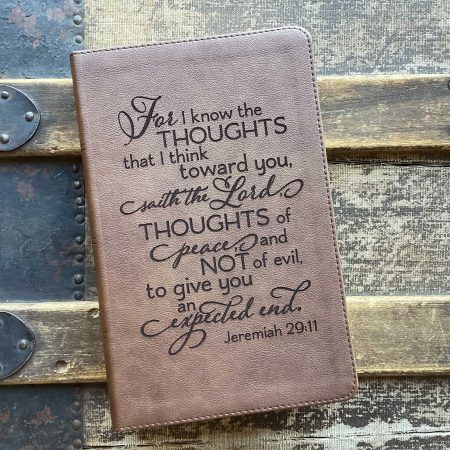 For I know the
THOUGHTS
that I think
toward you,
saith the Lord,
THOUGHTS of
peace, and
NOT of evil,
to give you
an
expected end.
Jeremiah 29:11